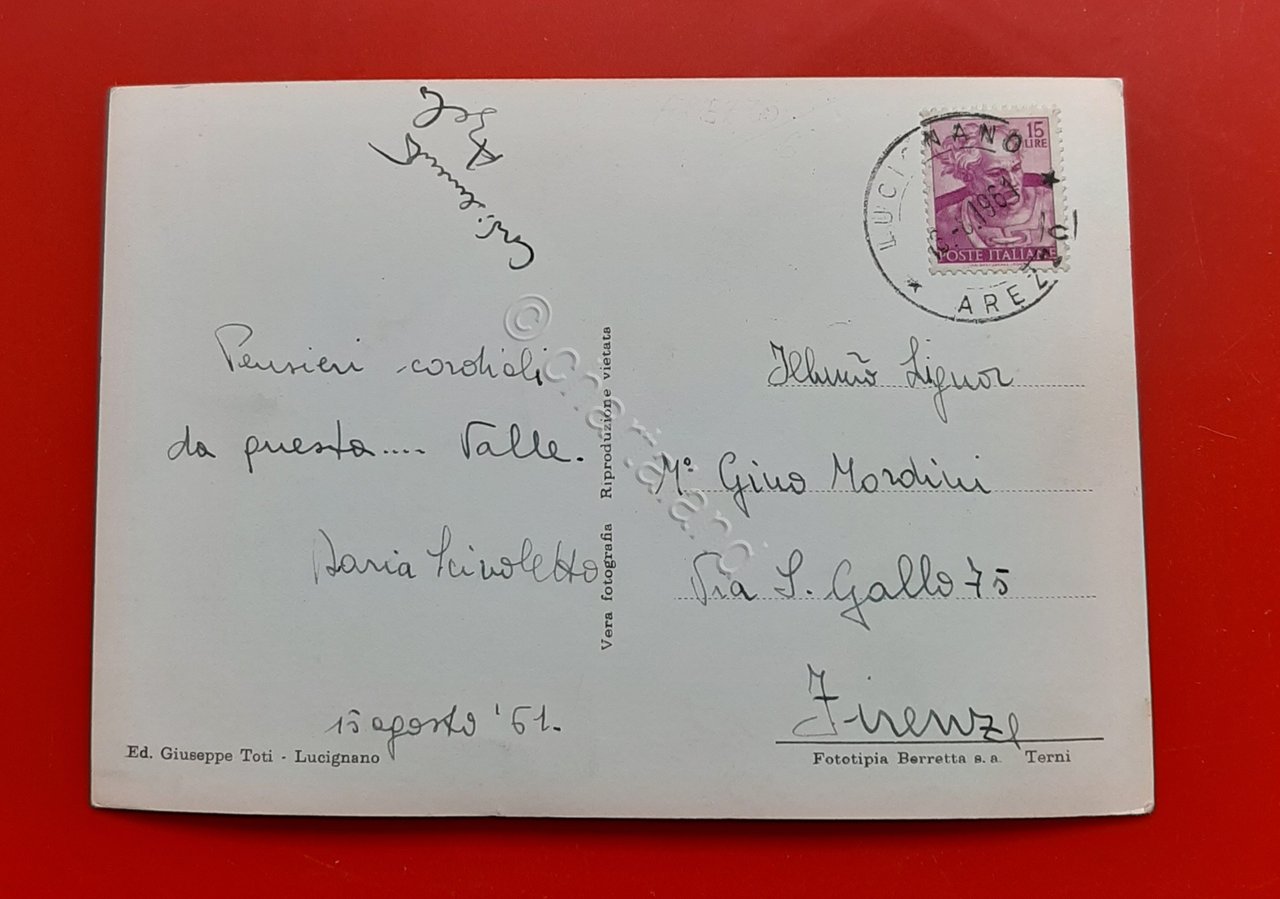 Pensieri cordiali
da questa.... Valle.
Daria Scivoletto
15 agosto '61.
Ed. Giuseppe Toti - Lucignano
Vera fotografia Riproduzione vietata
15
LIRE
POSTE ITALIANE
LUCIGNANO
1961
AREZZO
Illmo Signor
M° Gino Mordini
Via S. Gallo 75
Firenze
Fototipia Berretta s. a. Terni
© Charialand